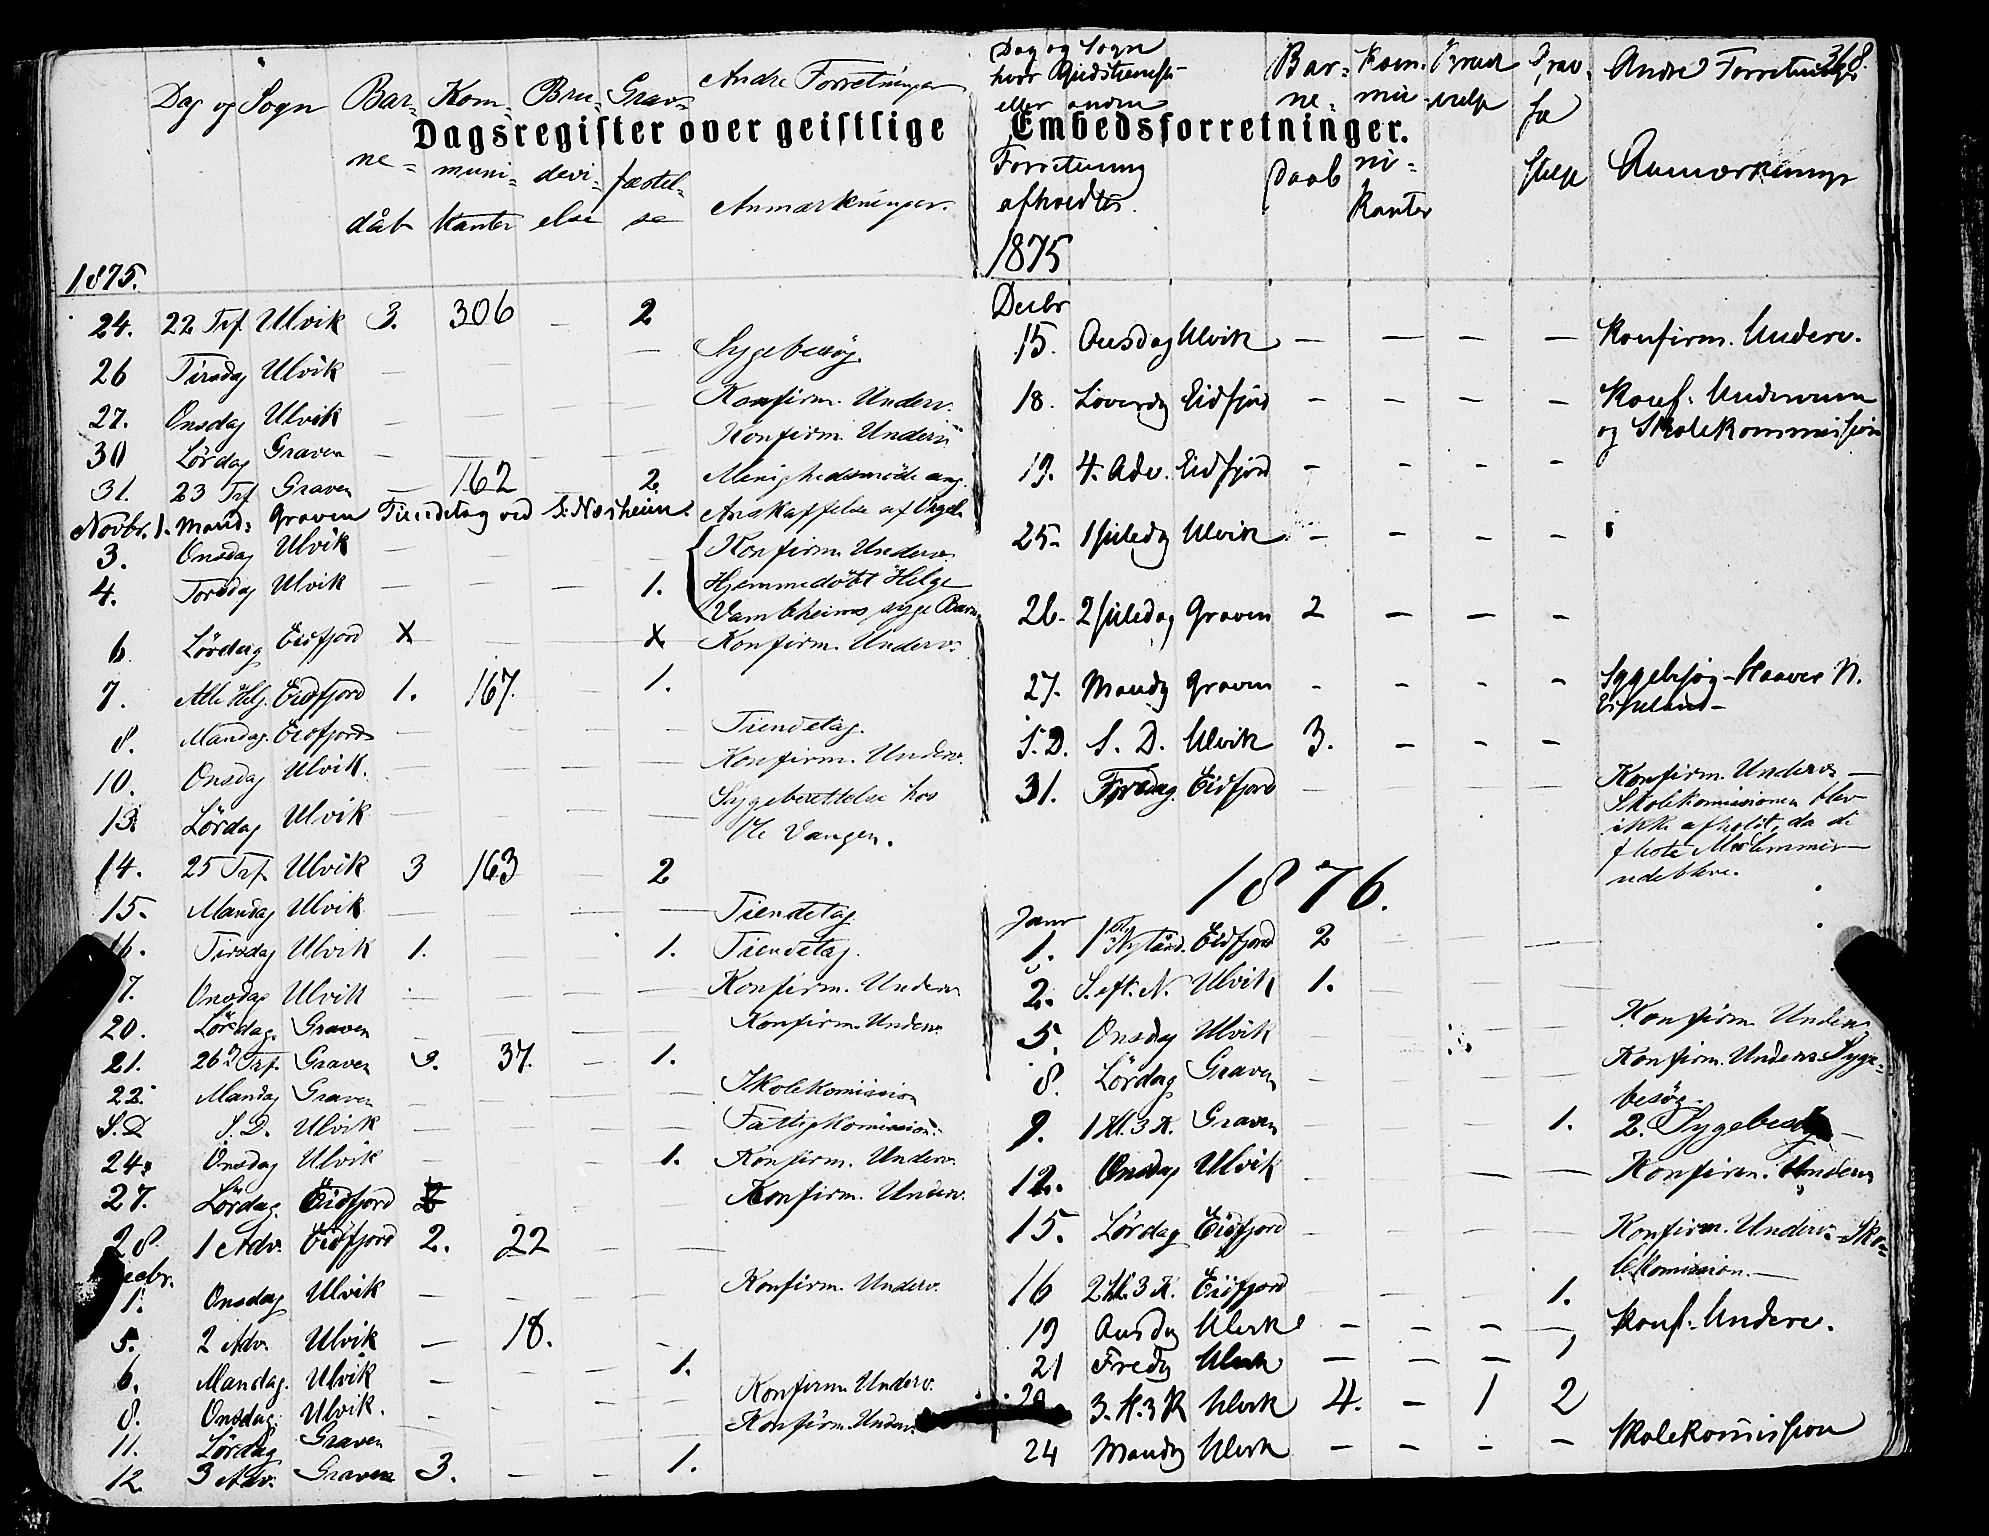 Dag og Sogn Bar- Kom- Bru- Gravs Andre Forretninger
Dagsregister over geistlige
ne- muni- devi- fæstel-
dåb kanter else se Anmærkninger.
1875.
24. 22 Trf. Ulvik 3. 306 — 2
26 Tirsdag Ulvik — — — Sygebesøg.
27. Onsdag Ulvik — — — Konfirm. Underv.
30 Lördag Graven — — — Konfirm. Underv.
31. 23 Trf Graven — 162 — 2 Menighedsmöde ang.
Novbr. 1. Mand: Graven Tiendetag ved S. Næsheim. Anskaffelse af Orgel.
3. Onsdag Ulvik — — — Konfirm. Underv.
4. Torsdag Ulvik — — — 1. Hjemmedöbt Helge
syge Barn
6 Lördag Eidfjord X — — X Konfirm. Underv.
7. Alle Helg. Eidfjord 1. 167. — 1.
8. Mandag. Eidfjord — — — Tiendetag.
10. Onsdag Ulvik. — — — Konfirm. Underv.
13. Lördag Ulvik — — — Sygeberettelse hos
Ole Vangen.
14. 25 Trf. Ulvik 3 163 — 2
15. Mandag Ulvik — — — Tiendetag
16. Tirsdag Ulvik 1. — — 1. Tiendetag.
17. Onsdag Ulvik — — — Konfirm. Underv.
20. Lördag. Graven — — — Konfirm. Underv.
21. 26 Trf. Graven 3. 37. — 1.
22. Mandag Graven — — — Skolekomission
S. D S. D. Ulvik — — — Fattigkomission.
24. Onsdag Ulvik — — — 1. Konfirm. Underv.
27. Lördag. Eidfjord Konfirm. Underv.
28. 1 Adv. Eidfjord 2. 22 — —
Decbr.
1. Onsdag Ulvik — — — Konfirm. Underv.
5. 2 Adv. Ulvik — 18. — —
6. Mandag. Ulvik — — — 1.
8. Onsdag. Ulvik. — — — Konfirm. Underv.
11. Lördag Graven — — — Konfirm. Underv.
12. 3 Adv. Graven 3. — — 1.
Dag og Sogn
hvor Gudstjeneste
eller andre
Bar- Kom- Brud Grav- Andre Forretninger 368.
ne- mu- vielse fæ
Embedsforretninger.
Forretning
afholdtes.
Daab ni- stelse Anmærkninger
kanter
1875
Decbr
15. Onsdag Ulvik — — — — Konfirm. Underv.
18. Löverdg Eidfjord — — — — Konf. Underv
og Skolekommission
19. 4. Adv. Eidfjord — — — —
25. 1 Juledg Ulvik — — — —
26. 2 Juledag Graven 2 — — —
27. Mandg Graven — — — — Sygebesøg N.
S. D. S. D. Ulvik 3. — — —
31. Fredag. Eidfjord — — — — Konfirm. Underv. —
Skolekomissionen blev
ikke afholdt, da de
fleste Medlemmer
udebleve.
1876.
Janr
1. 1ste Nytård. Eidfjord 2 — — —
2. S. eft. N. Ulvik 1. — — —
5. Onsdag Ulvik — — — — Konfirm. Underv
8. Lördag Graven — — — — Konfirm. Underv. Syge-
besøg.
9. 1 H. 3 K. Graven — — — 1. 2. Sygebesøg —
12. Onsdag Ulvik — — — — Konfirm. Underv
15. Lördag Eidfjord — — — — Konfirm. Underv. Sko-
lekomission. —
16 2 H. 3 K. Eidfjord — — — 1.
19 Onsdg Ulvik — — — — Konf. Underv.
21 Fredg Ulvik — — — 1
3. H. 3 K Ulvik 4. — 1 2
24 Mandg Ulvik — — — — Skolekomission